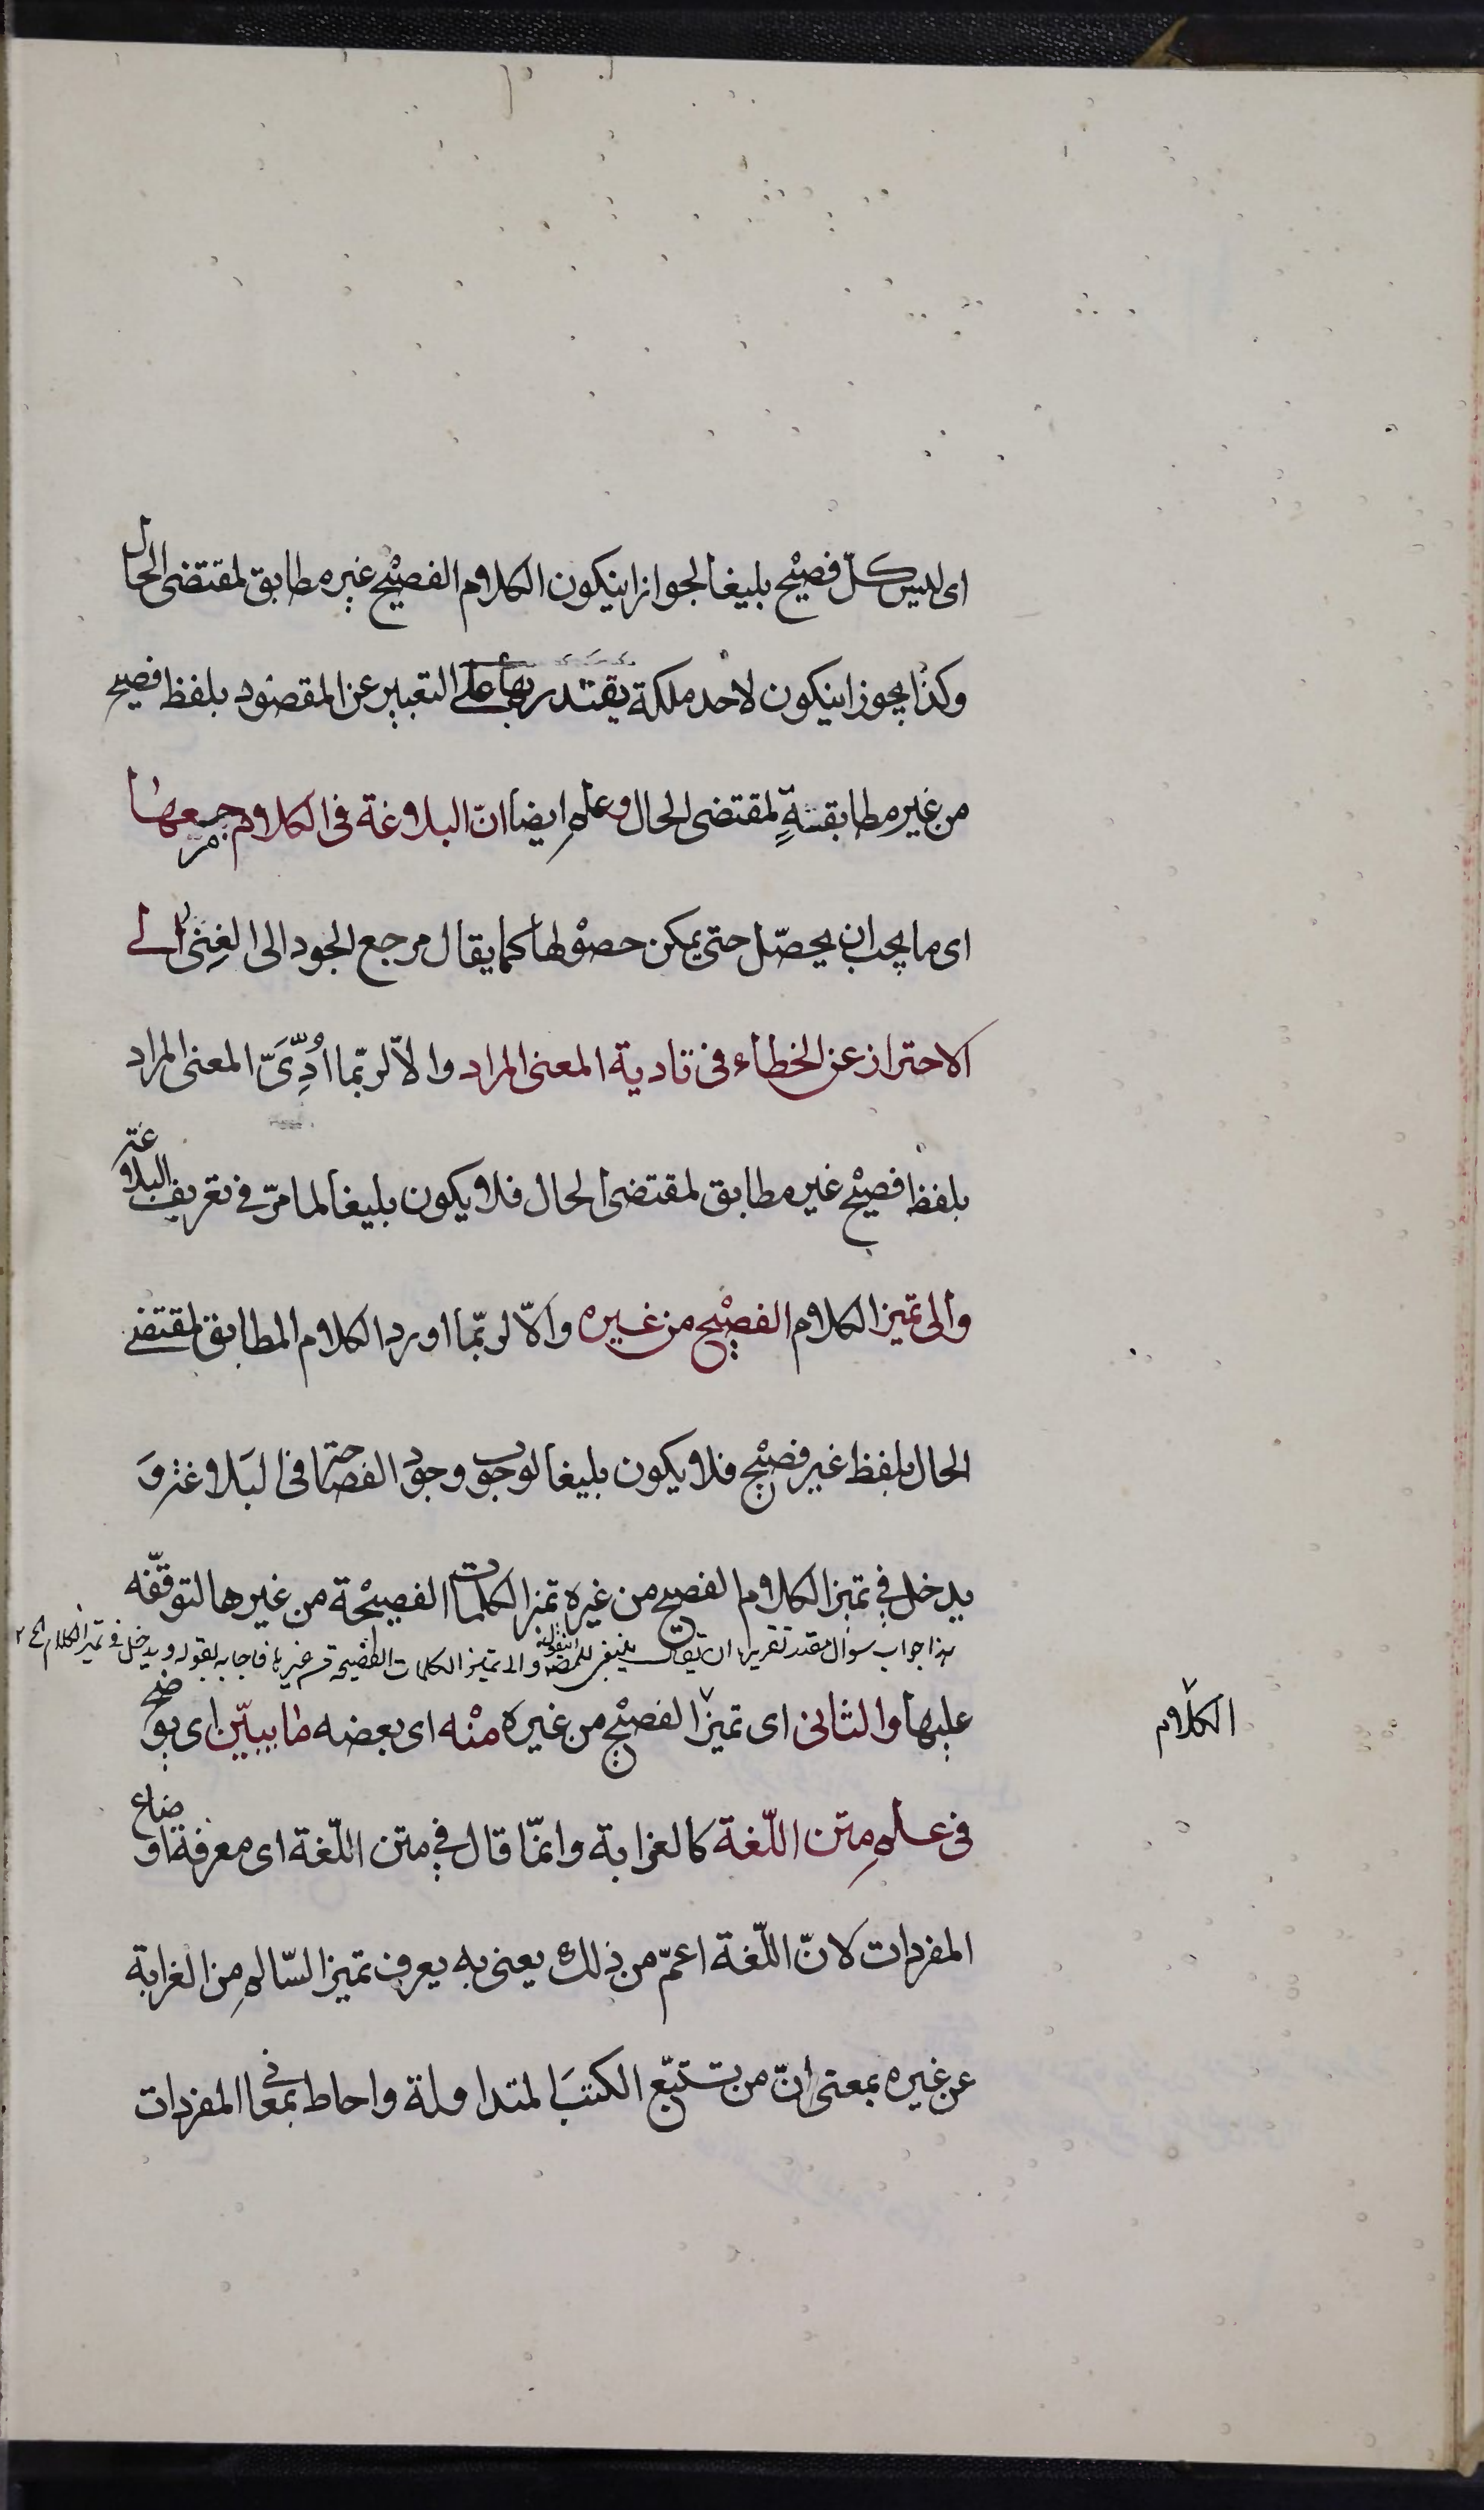 اى ليس كلّ فصيح بليغا لجواز انيكون الكلام الفصيح غير مطابق لمقتضى الحال
وكذا يجوز انيكون لاحد ملكة يقتدر بها على التعبير عن المقصود بلفظ فصيح
من غير مطابقة لمقتضى الحال وعلم ايضا انّ البلاغة فى الكلام مرجعها
اى ما يجب ان يحصّل حتى يمكن حصولها كما يقال مرجع الجود الى الغنى الى
الاحتراز عن الخطاء فى تادية المعنى المراد والّا لربّما ادِّىَ المعنى المراد
بلفظ فصيح غير مطابق لمقتضى الحال فلا يكون بليغا لما مرّ فى تعريف البلاغة
والى تميز الكلام الفصيح من غيره والّا لربّما اورد الكلام المطابق لمقتضى
الحال بلفظ غير فصيح فلا يكون بليغا لوجوب وجود الفصاحة فى البلاغة وَ
يدخل فى تميز الكلام الفصيح من غيره تميز الكلمات الفصيحة من غيرها لتوقّفه
هذا جواب سوال مقدر تقريره ان يقال ينبغى للمصنف ان يقول والى تميز الكلمات الفصيحة من غيرها فاجابه بقوله ويدخل فى تميز الكلام الخ ٢
عليها والثانى اى تميز الفصيح من غيره منْه اى بعضه ما يبيّن اى يوضح
الكلام
فى علم متن اللّغة كالغرابة وانّما قال فى متن اللّغة اى معرفة اوضاع
المفردات لانّ اللّغة اعمّ من ذلك يعنى به يعرف تميز السّالم من الغرابة
عن غيره بمعنى انّ من تتبّع الكتبَ المتداولة واحاط بمعانى المفردات